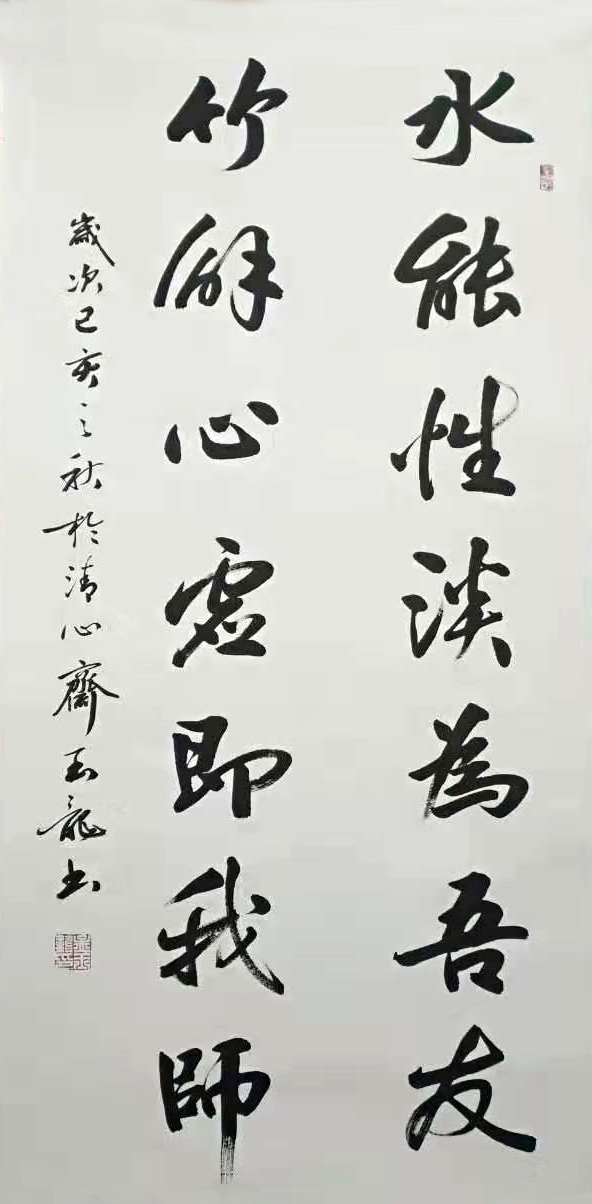 水能性淡為吾友
竹解心虛即我師
歲次己亥之秋於清心齋玉龍书